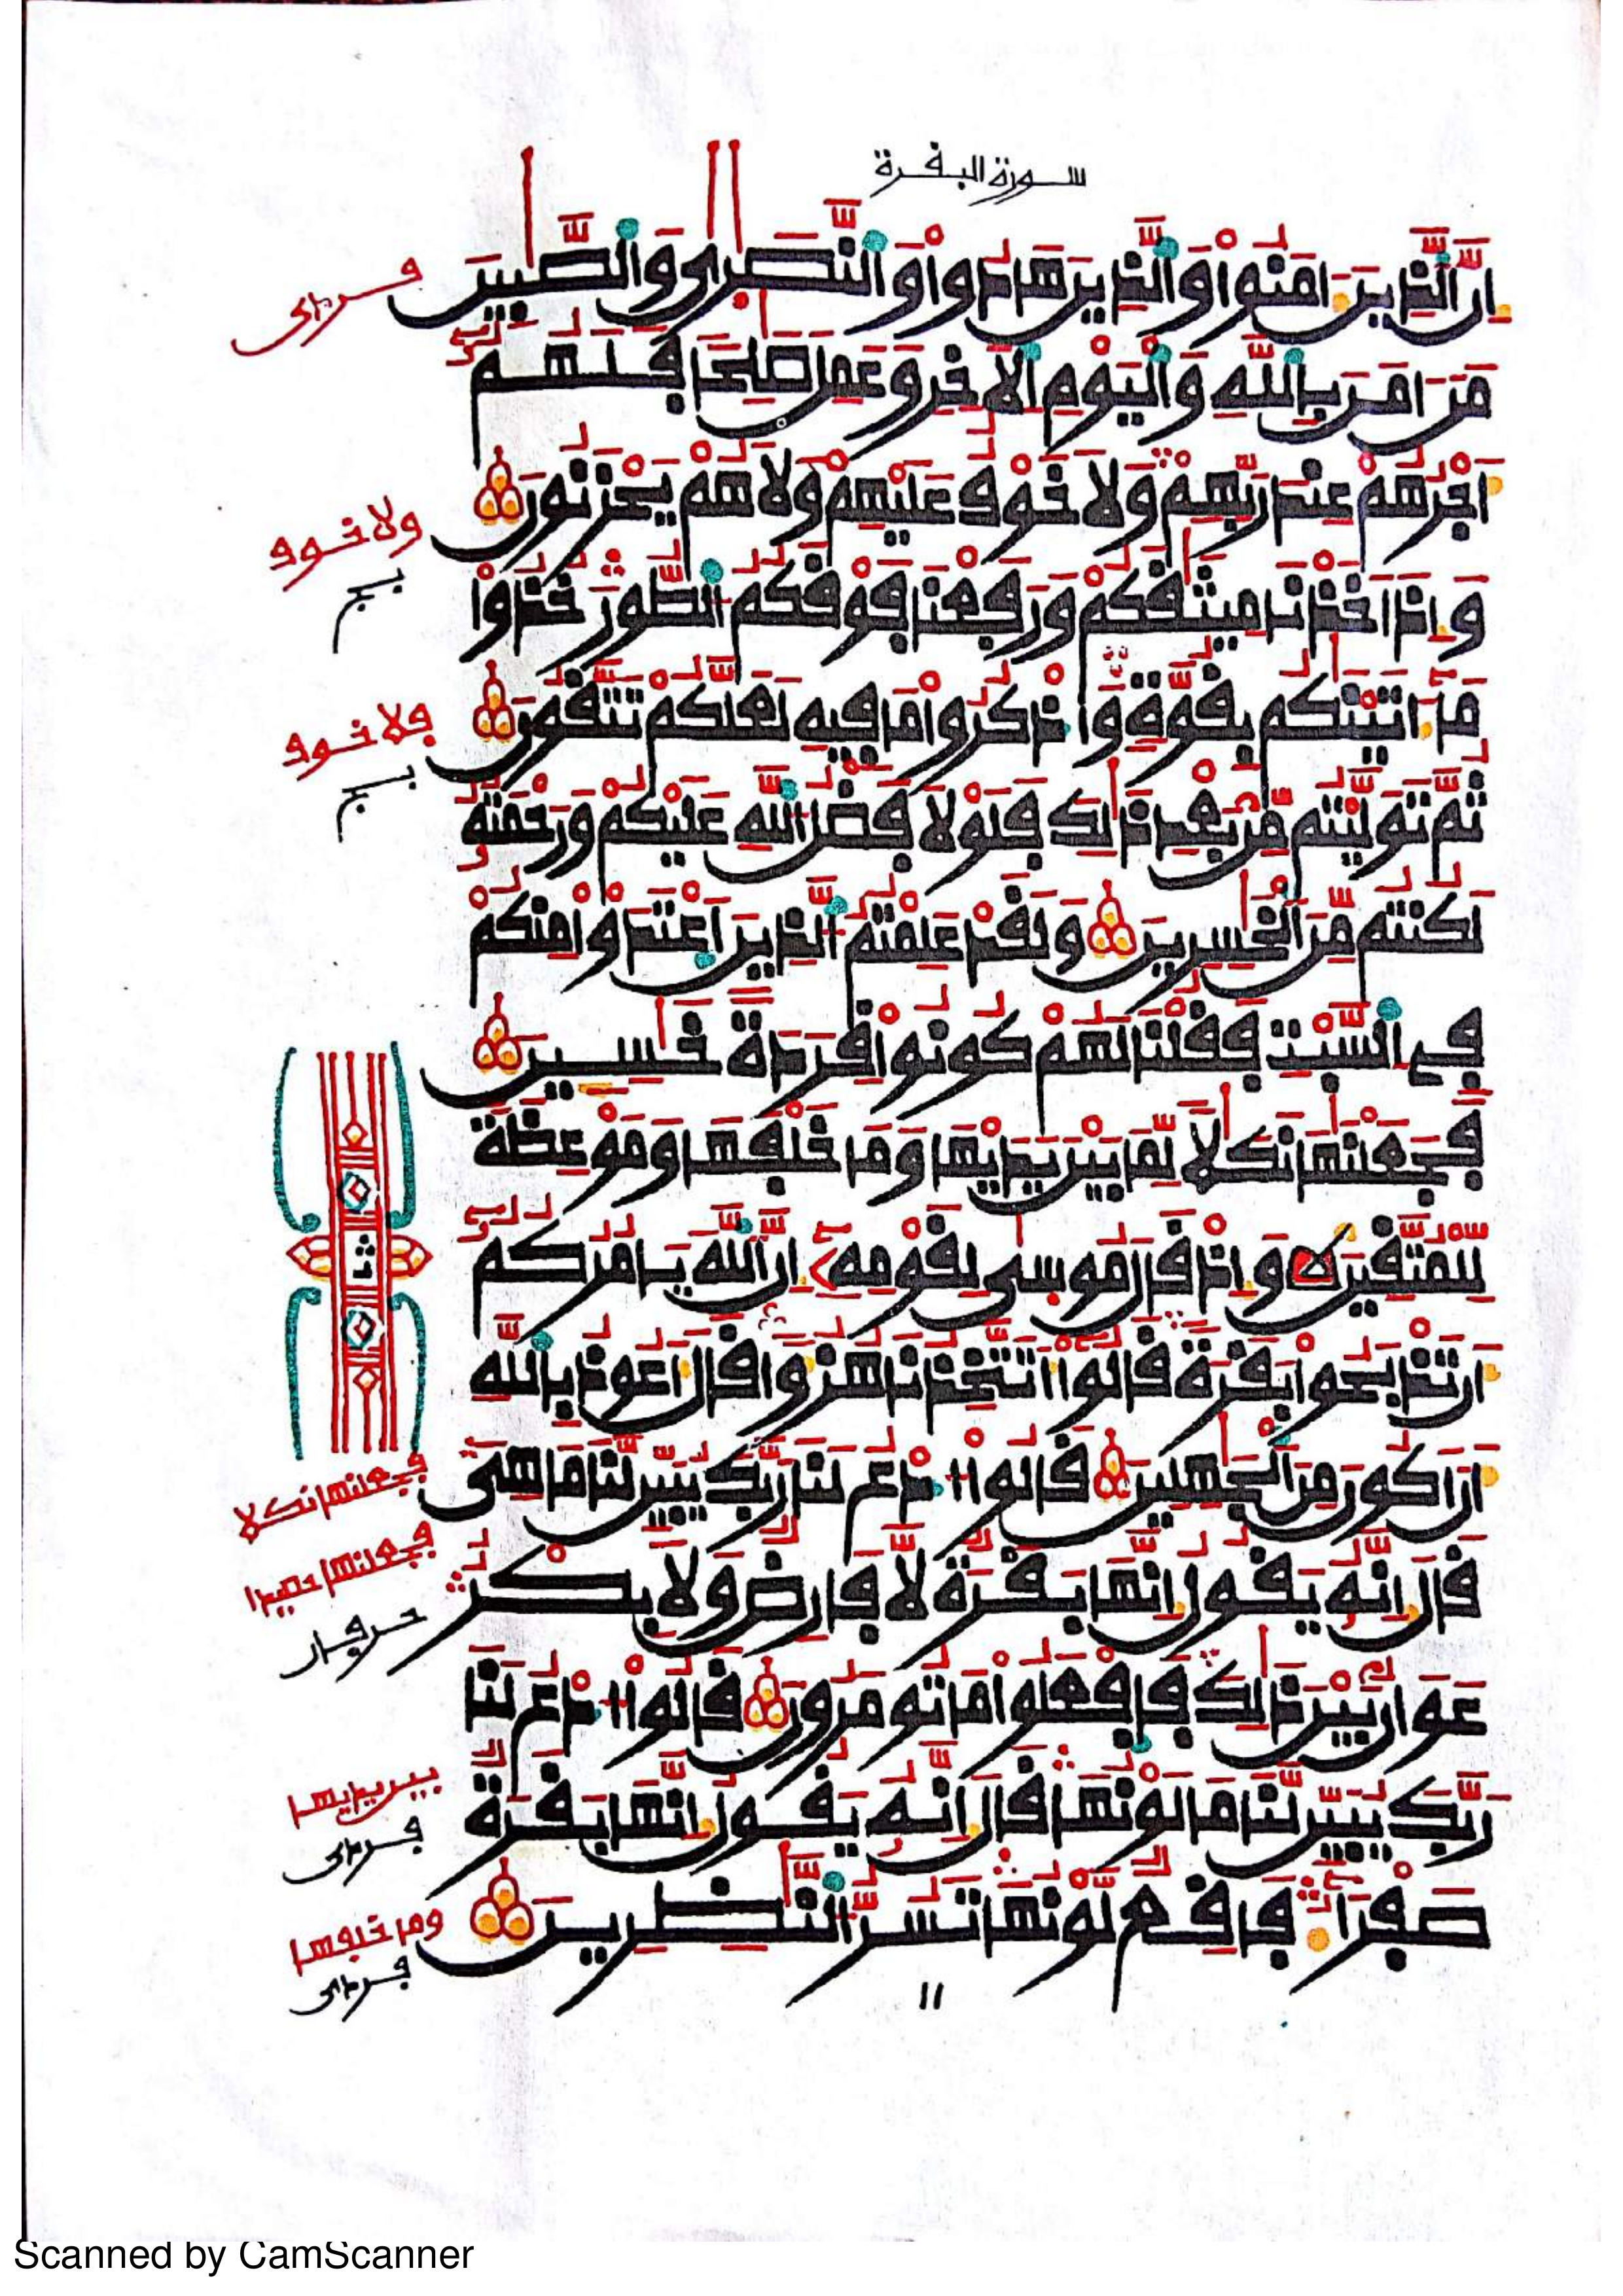 سورة البقرة
اِنَّ اَ۬لذِينَ ءَامَنُواْ وَالذِينَ هَادُواْ وَالنَّصَٰر۪ىٰ وَالصَّٰبِينَ
مَنَ اٰمَنَ بِاللَّهِ وَالْيَوْمِ اِ۬لَاخِرِ وَعَمِلَ صَٰلِحاٗ فَلَهُمُۥٓ
أَجْرُهُمْ عِندَ رَبِّهِمْ وَلَا خَوْفٌ عَلَيْهِمْ وَلَا هُمْ يَحْزَنُونَ
وَإِذَ اَخَذْنَا مِيثَٰقَكُمْ وَرَفَعْنَا فَوْقَكُمُ اُ۬لطُّورَ خُذُواْ
مَآ ءَاتَيْنَٰكُم بِقُوَّةٖ وَاذْكُرُواْ مَا فِيهِ لَعَلَّكُمْ تَتَّقُونَ
ثُمَّ تَوَلَّيْتُم مِّنۢ بَعْدِ ذَٰلِكَ فَلَوْلَا فَضْلُ اُ۬للَّهِ عَلَيْكُمْ وَرَحْمَتُهُۥ
لَكُنتُم مِّنَ اَ۬لْخَٰسِرِينَ وَلَقَدْ عَلِمْتُمُ اُ۬لذِينَ اَ۪عْتَدَوْاْ مِنكُمْ
فِے اِ۬لسَّبْتِ فَقُلْنَا لَهُمْ كُونُواْ قِرَدَةً خَٰسِـِٕينَ
فَجَعَلْنَٰهَا نَكَٰلاٗ لِّمَا بَيْنَ يَدَيْهَا وَمَا خَلْفَهَا وَمَوْعِظَةٗ
لِّلْمُتَّقِينَ وَإِذْ قَالَ مُوس۪ىٰ لِقَوْمِهِۦٓ إِنَّ اَ۬للَّهَ يَامُرُكُمُۥٓ
أَن تَذْبَحُواْ بَقَرَةٗ قَالُوٓاْ أَتَتَّخِذُنَا هُزُؤاٗ قَالَ أَعُوذُ بِاللَّهِ
أَنَ اَكُونَ مِنَ اَ۬لْجَٰهِلِينَ قَالُواْ اُ۟دْعُ لَنَا رَبَّكَ يُبَيِّن لَّنَا مَا هِيَ
قَالَ إِنَّهُۥ يَقُولُ إِنَّهَا بَقَرَةٞ لَّا فَارِضٞ وَلَا بِكْرٌ
عَوَانُۢ بَيْنَ ذَٰلِكَ فَافْعَلُواْ مَا تُومَرُونَ قَالُواْ اُ۟دْعُ لَنَا
رَبَّكَ يُبَيِّن لَّنَا مَا لَوْنُهَا قَالَ إِنَّهُۥ يَقُولُ إِنَّهَا بَقَرَةٞ
صَفْرَآءُ فَاقِعٞ لَّوْنُهَا تَسُرُّ اُ۬لنَّٰظِرِينَ
ولا خوف
فلا خوف
ثا
فجعلنها نكلا
فجعلنها حصيدا
بين يديها
وما خلفها
١١
Scanned by CamScanner